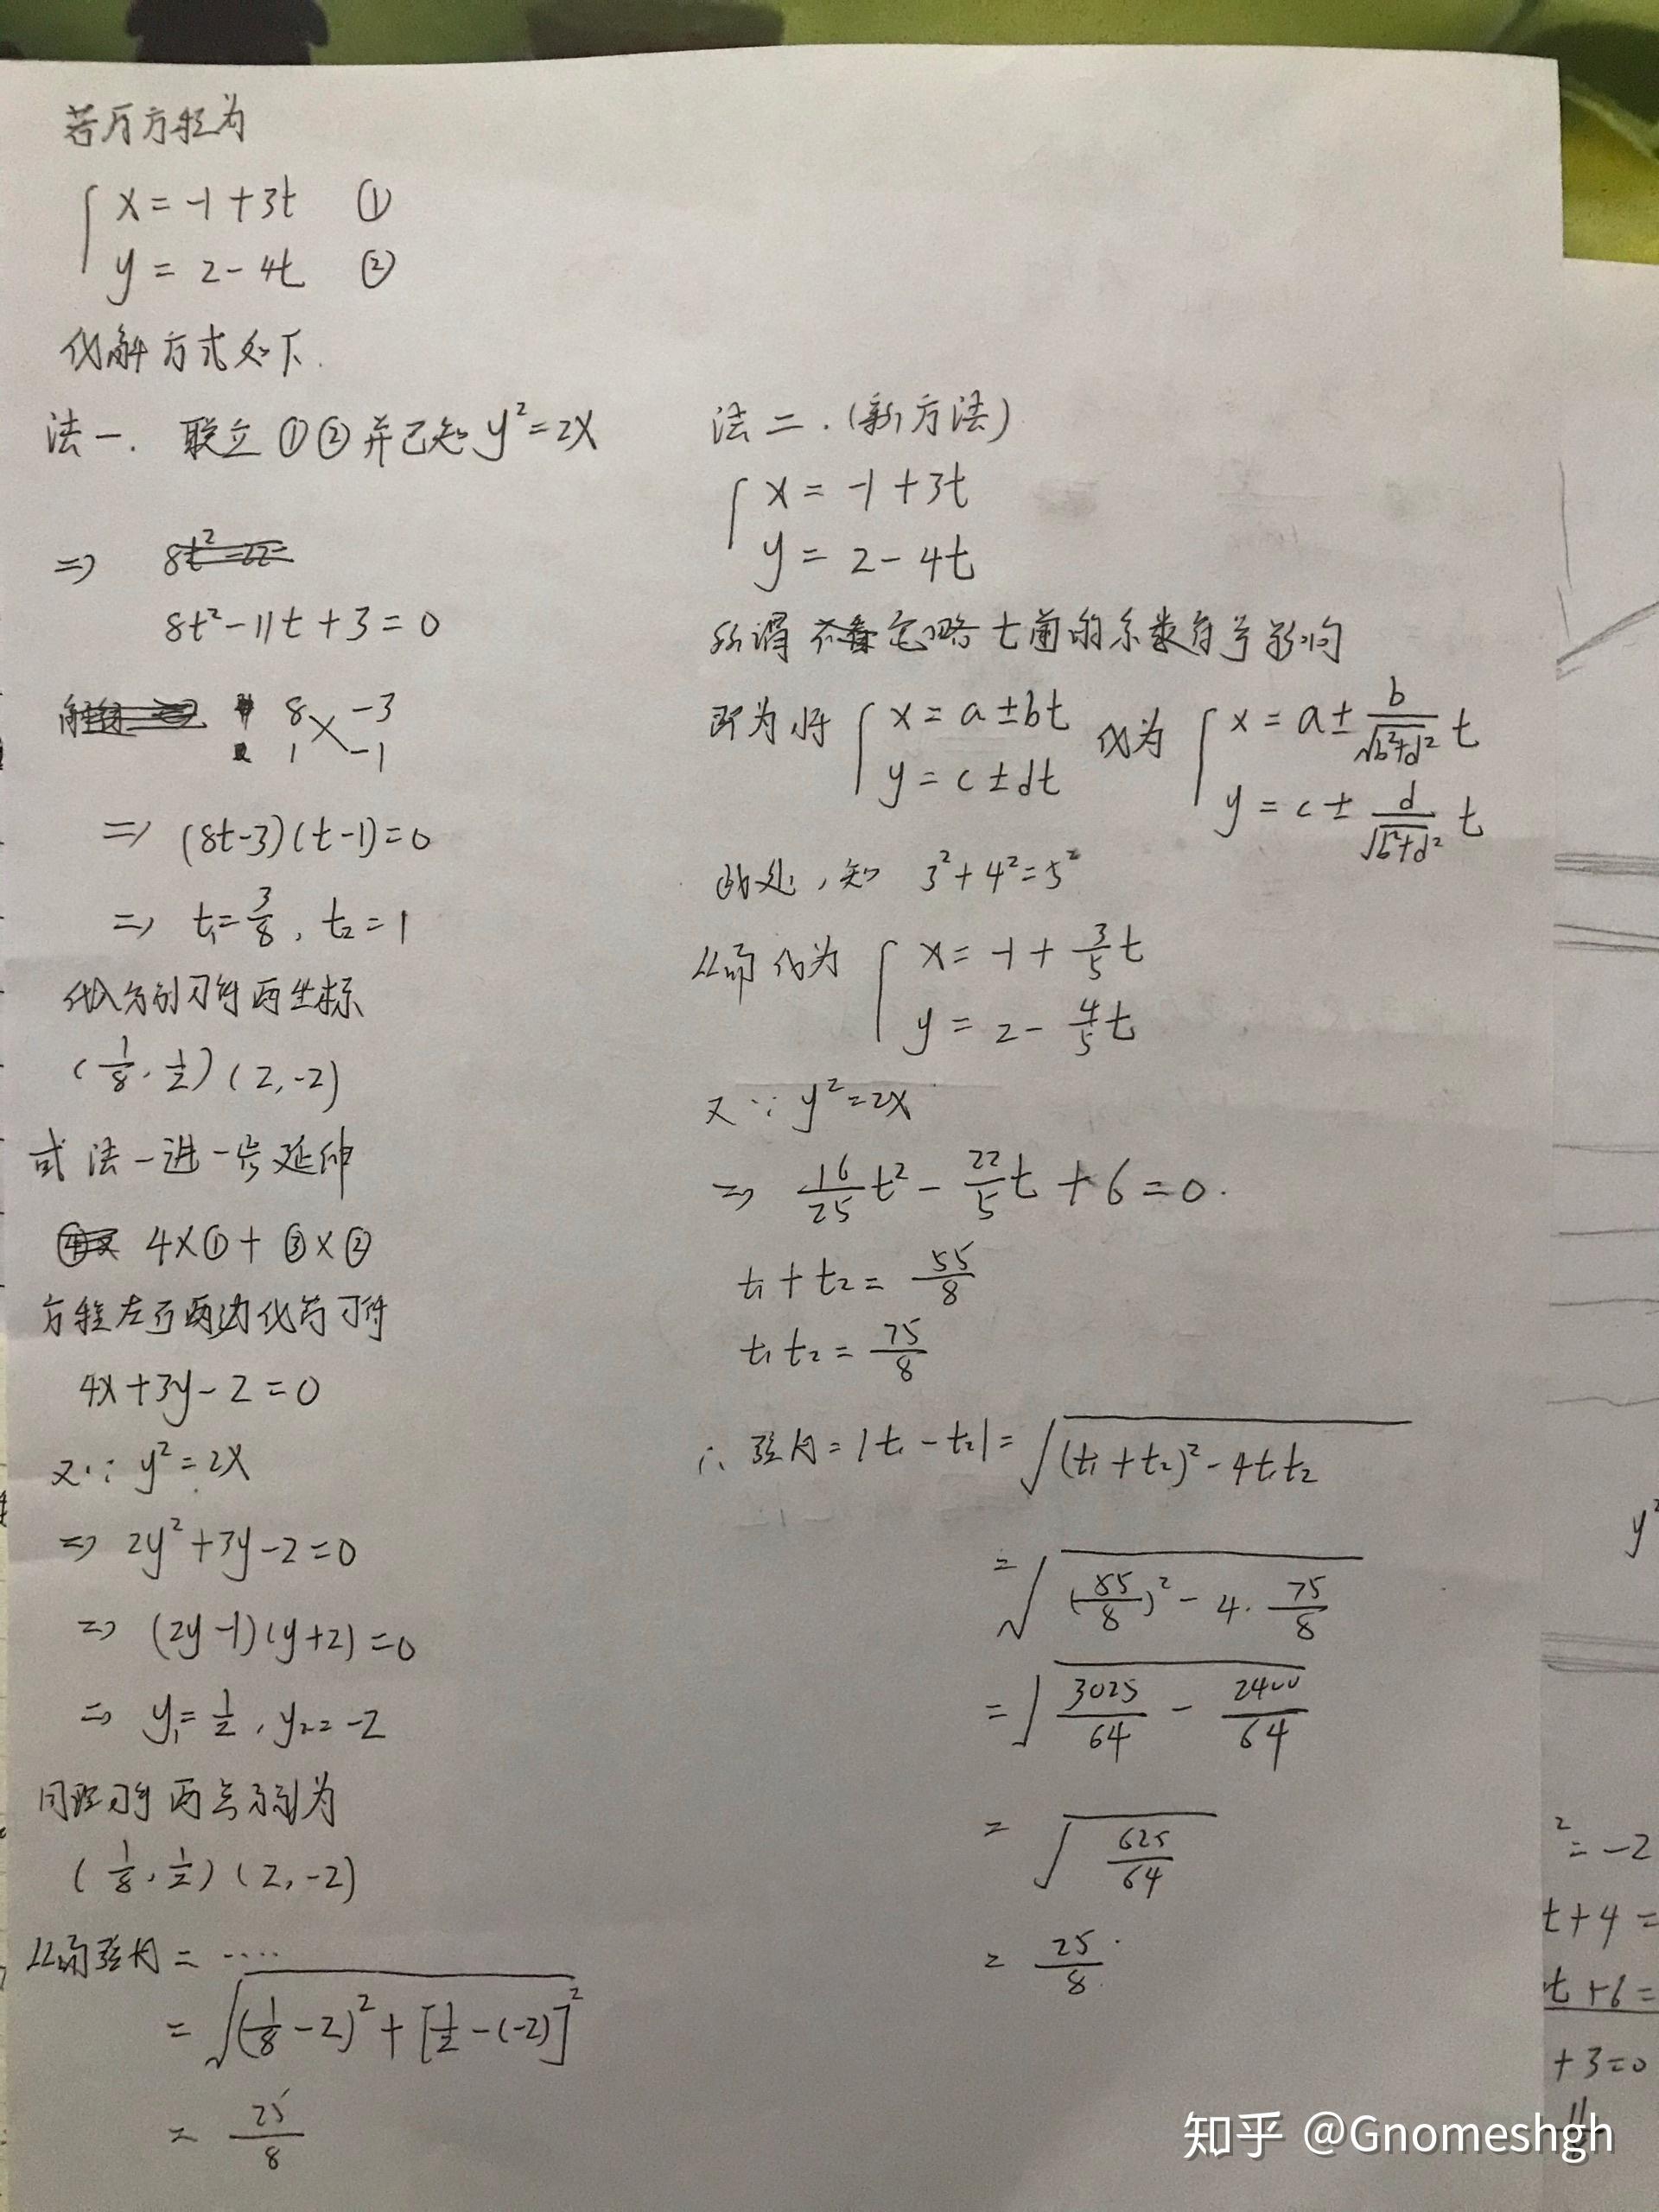 若方程为
x = -1 + 3t ①
y = 2 - 4t ②
化解方式如下.
法一. 联立①②并已知 y² = 2x
⇒ 8t² - 22
8t² - 11t + 3 = 0
8 -3
1 -1
⇒ (8t-3)(t-1) = 0
⇒ t₁ = 3/8, t₂ = 1
代入分别可得两坐标
(1/8, 1/2) (2, -2)
或法一进一步延伸
4×① + ③×②
方程左右两边化简可得
4x + 3y - 2 = 0
又∵ y² = 2x
⇒ 2y² + 3y - 2 = 0
⇒ (2y-1)(y+2) = 0
⇒ y₁ = 1/2, y₂ = -2
同理可得两点分别为
(1/8, 1/2) (2, -2)
从而弦长 = ····
= √((1/8 - 2)² + [1/2 - (-2)]²)
= 25/8
法二. (新方法)
x = -1 + 3t
y = 2 - 4t
忽略t前的系数符号影响
即为将 { x = a ± bt 化为 { x = a ± b/√(b²+d²) t
y = c ± dt y = c ± d/√(b²+d²) t
此处, 知 3² + 4² = 5²
从而化为 { x = -1 + 3/5 t
y = 2 - 4/5 t
又∵ y² = 2x
⇒ 16/25 t² - 22/5 t + 6 = 0.
t₁ + t₂ = 55/8
t₁ t₂ = 75/8
∴ 弦长 = |t₁ - t₂| = √((t₁ + t₂)² - 4t₁t₂)
= √((55/8)² - 4 · 75/8)
= √(3025/64 - 2400/64)
= √(625/64)
= 25/8.
y²
² = -2
t + 4 =
t + 6 =
+ 3 = 0
11
知乎 @Gnomeshgh